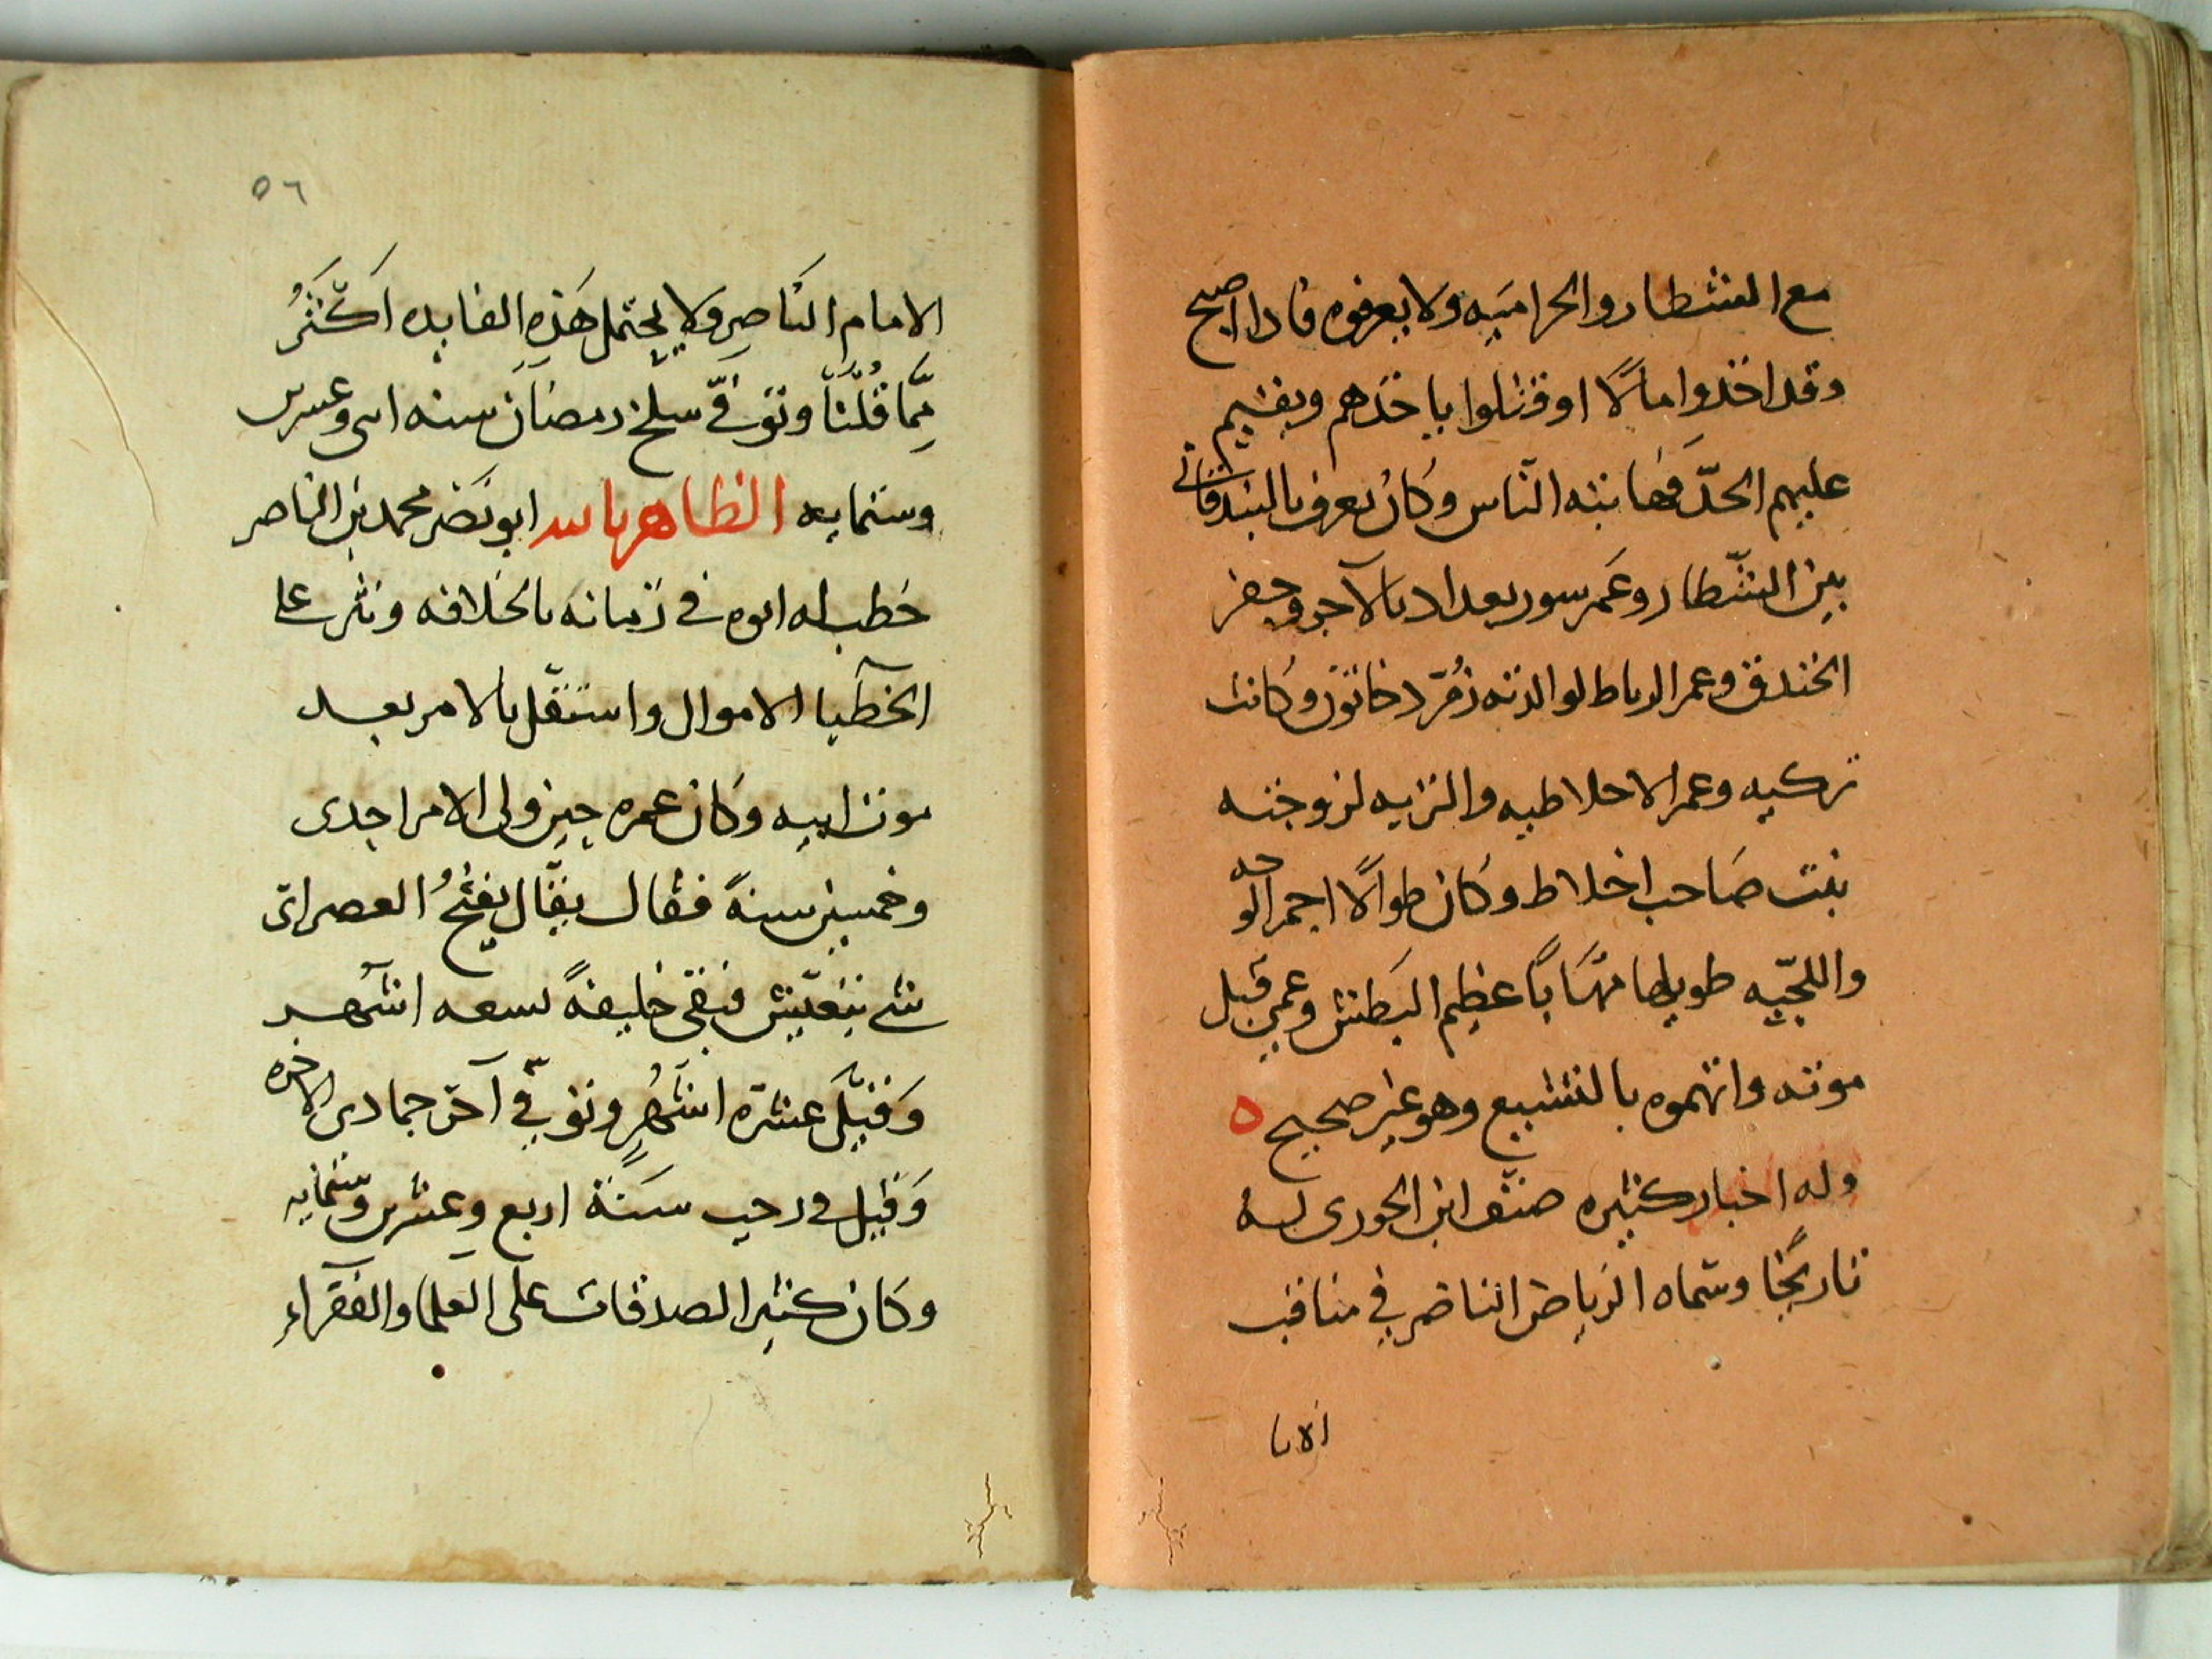 مع الشطار والحراميه ولا يعرفوه فاذا اصبح
وقد اخذوا مالًا او قتلوا ياخذهم ويقيم
عليهم الحدّ فهابته الناس وكان يعرف بالبندقانى
بين الشّطار وعَمر سور بغداد بالآجر وحفر
الخندق وعمر الرباط لوالدته زمُرّد خاتون وكانت
تركيه وعمر الاخلاطيه والتربه لزوجته
بنت صَاحب اخلاط وكان طوالًا احمر الوجه
واللحيّه طويلها مهَابًا عظيم البَطش وعمى قبل
موته واتهموه بالتشيع وهو غير صحيح ه
وله اخبار كثيره صنّف ابن الجوزى له
تاريخًا وسماه الرياض الناضر في مناقب
الاما
٥٦
الامام النَاصِر ولا يحتمل هَذِه الفايده اَكْثَرُ
مِمَّا قُلْنَا وتوفّي سلخ رمضان سنه اىى وعسرىں
وستمايه الظاهر بالله ابو نَصْر محمد بن الناصر
خطب له ابوه في زمانه بالخلافه ونثر على
الخطبا الاموال واستقلّ بالامر بعد
موت ابيه وكان عمره حين ولى الامر احدى
وخمسين سنةً فقال بقّال يفتحُ العصر اىّ
شى يتعيّش فبقى خليفةً تسعه اشهر
وَقيْلَ عشرة اشْهُرٍ وتوفّي في آخر جمادى الاخره
وَقيل في رجب سَنَة اربع وعشرين وستمايه
وكان كثير الصدقات على العلما والفقرآء